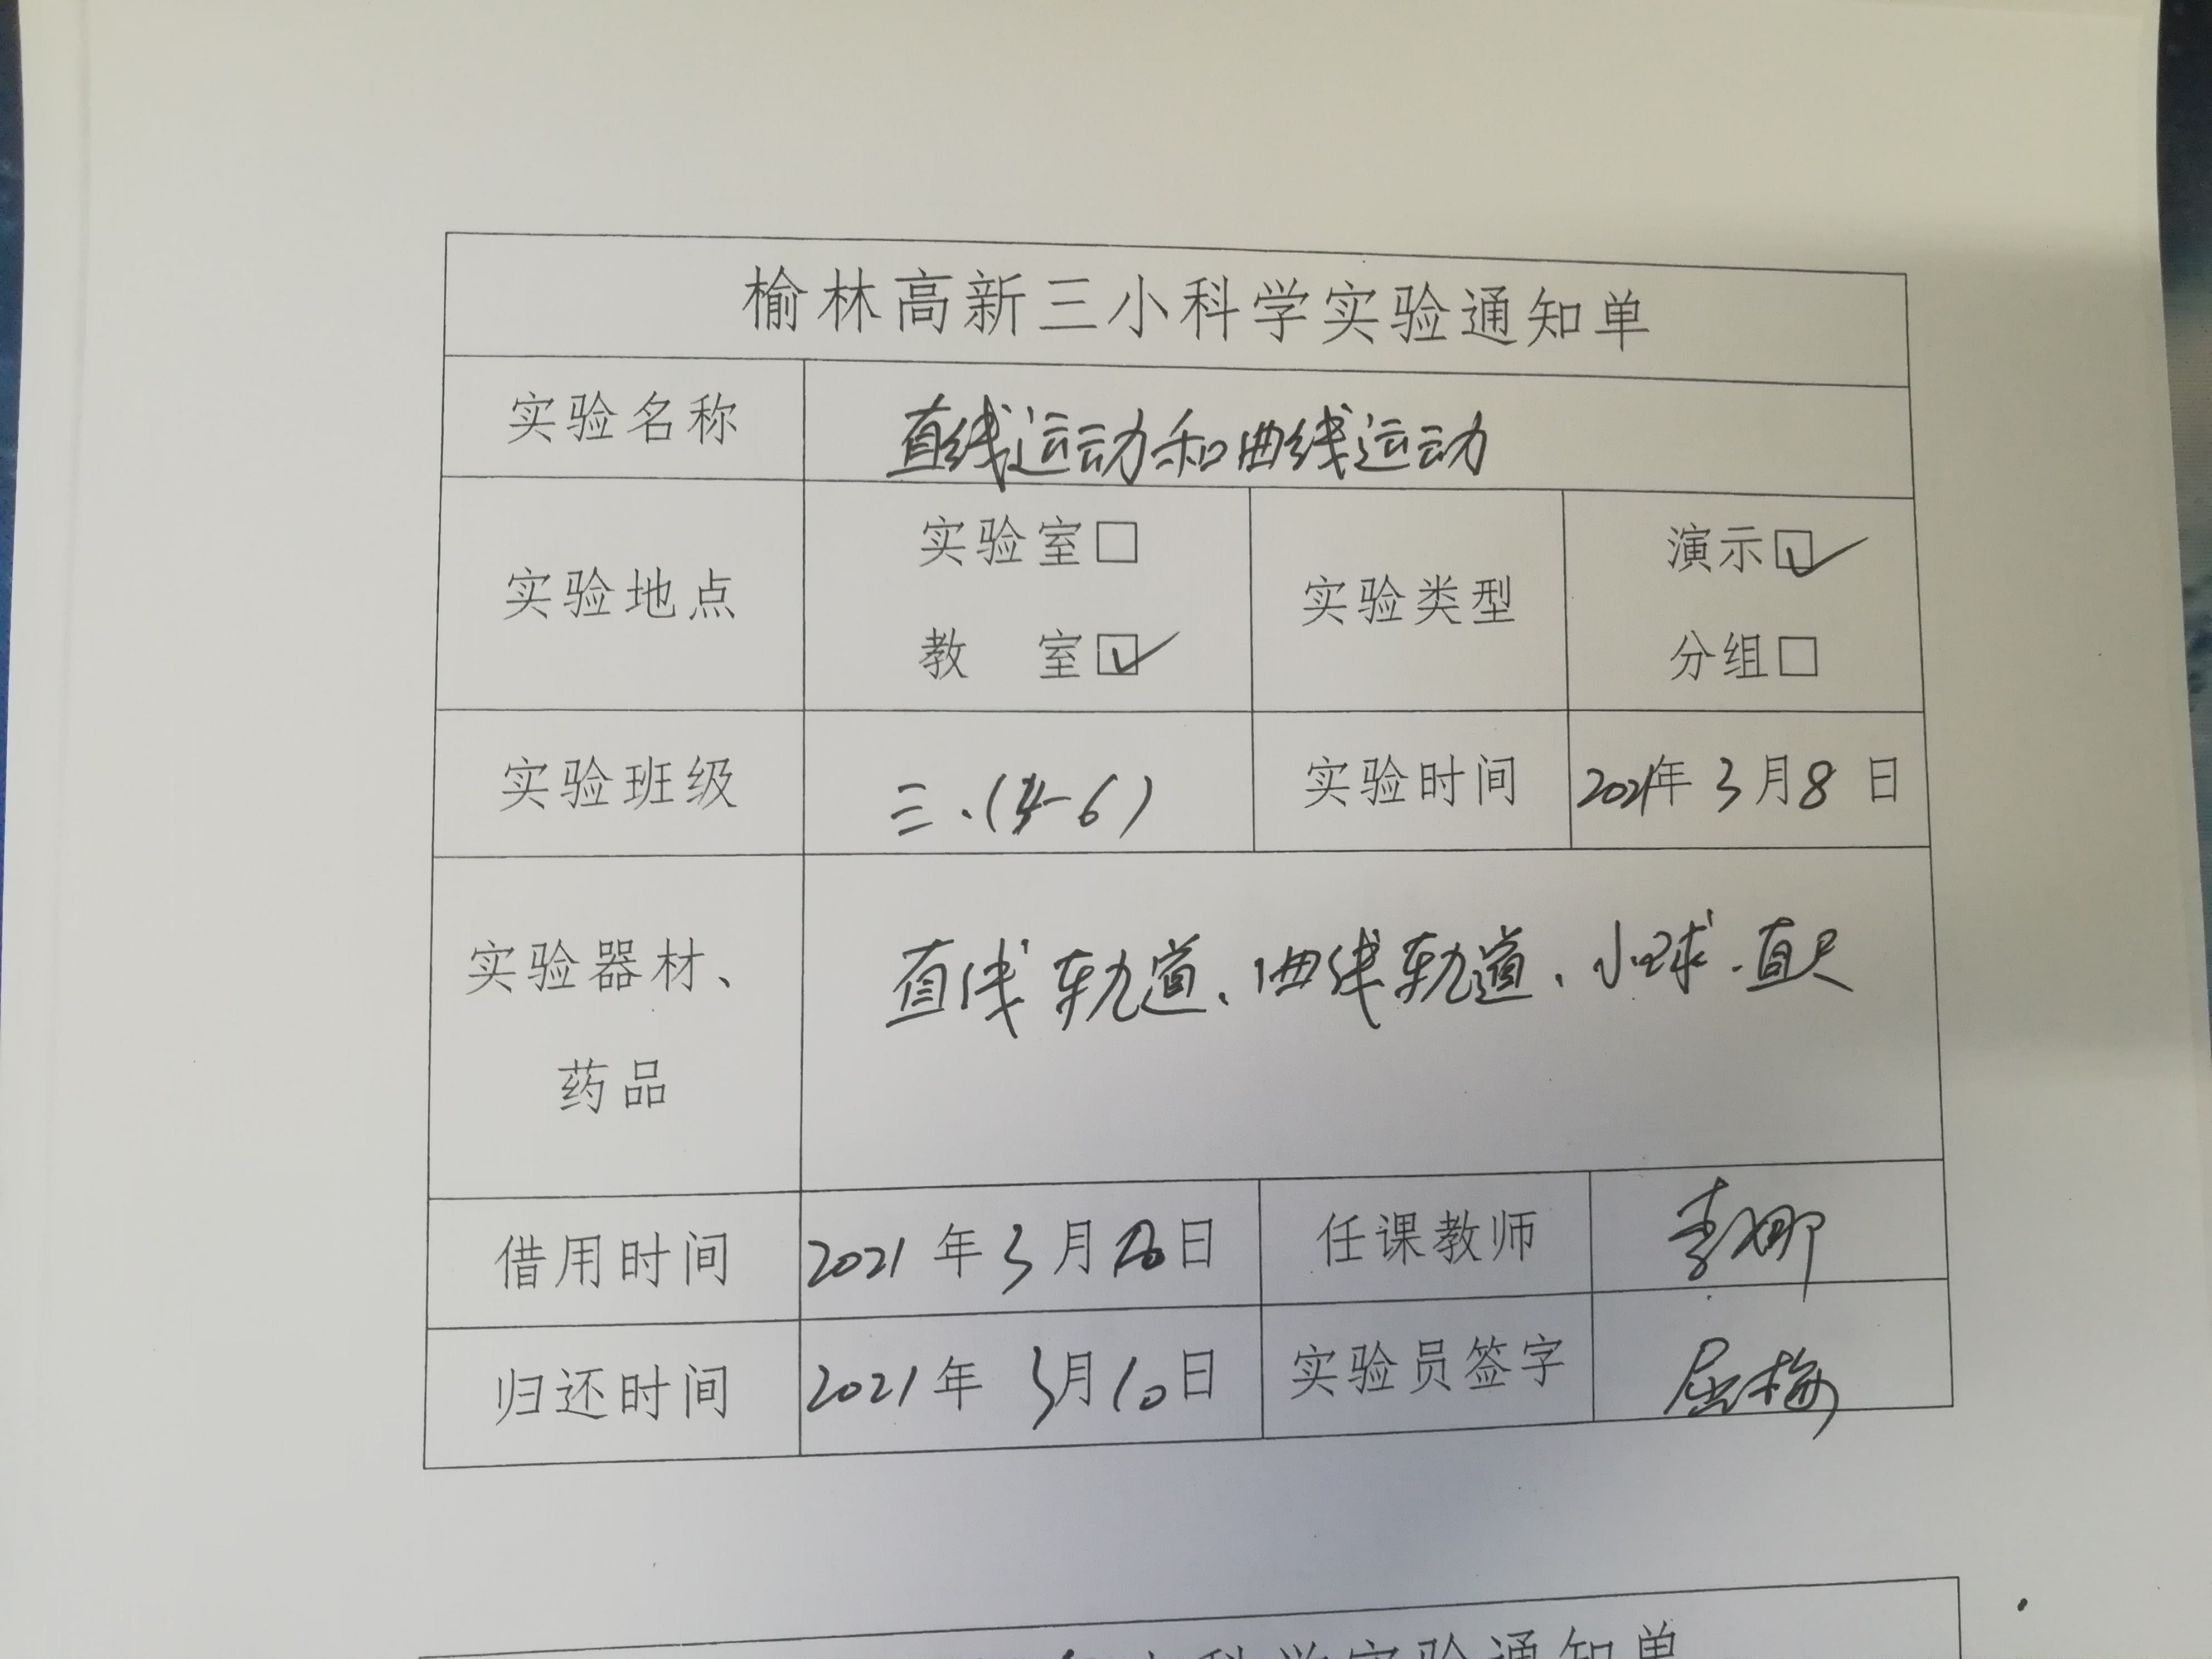 榆林高新三小科学实验通知单
实验名称 直线运动和曲线运动
实验地点 实验室□ 教 室☑ 实验类型 演示☑ 分组□
实验班级 三.(4-6) 实验时间 2021年3月8日
实验器材、药品 直线轨道、曲线轨道、小球、直尺
借用时间 2021年3月 日 任课教师 李娜
归还时间 2021年3月10日 实验员签字 屈梅
小科学实验通知单